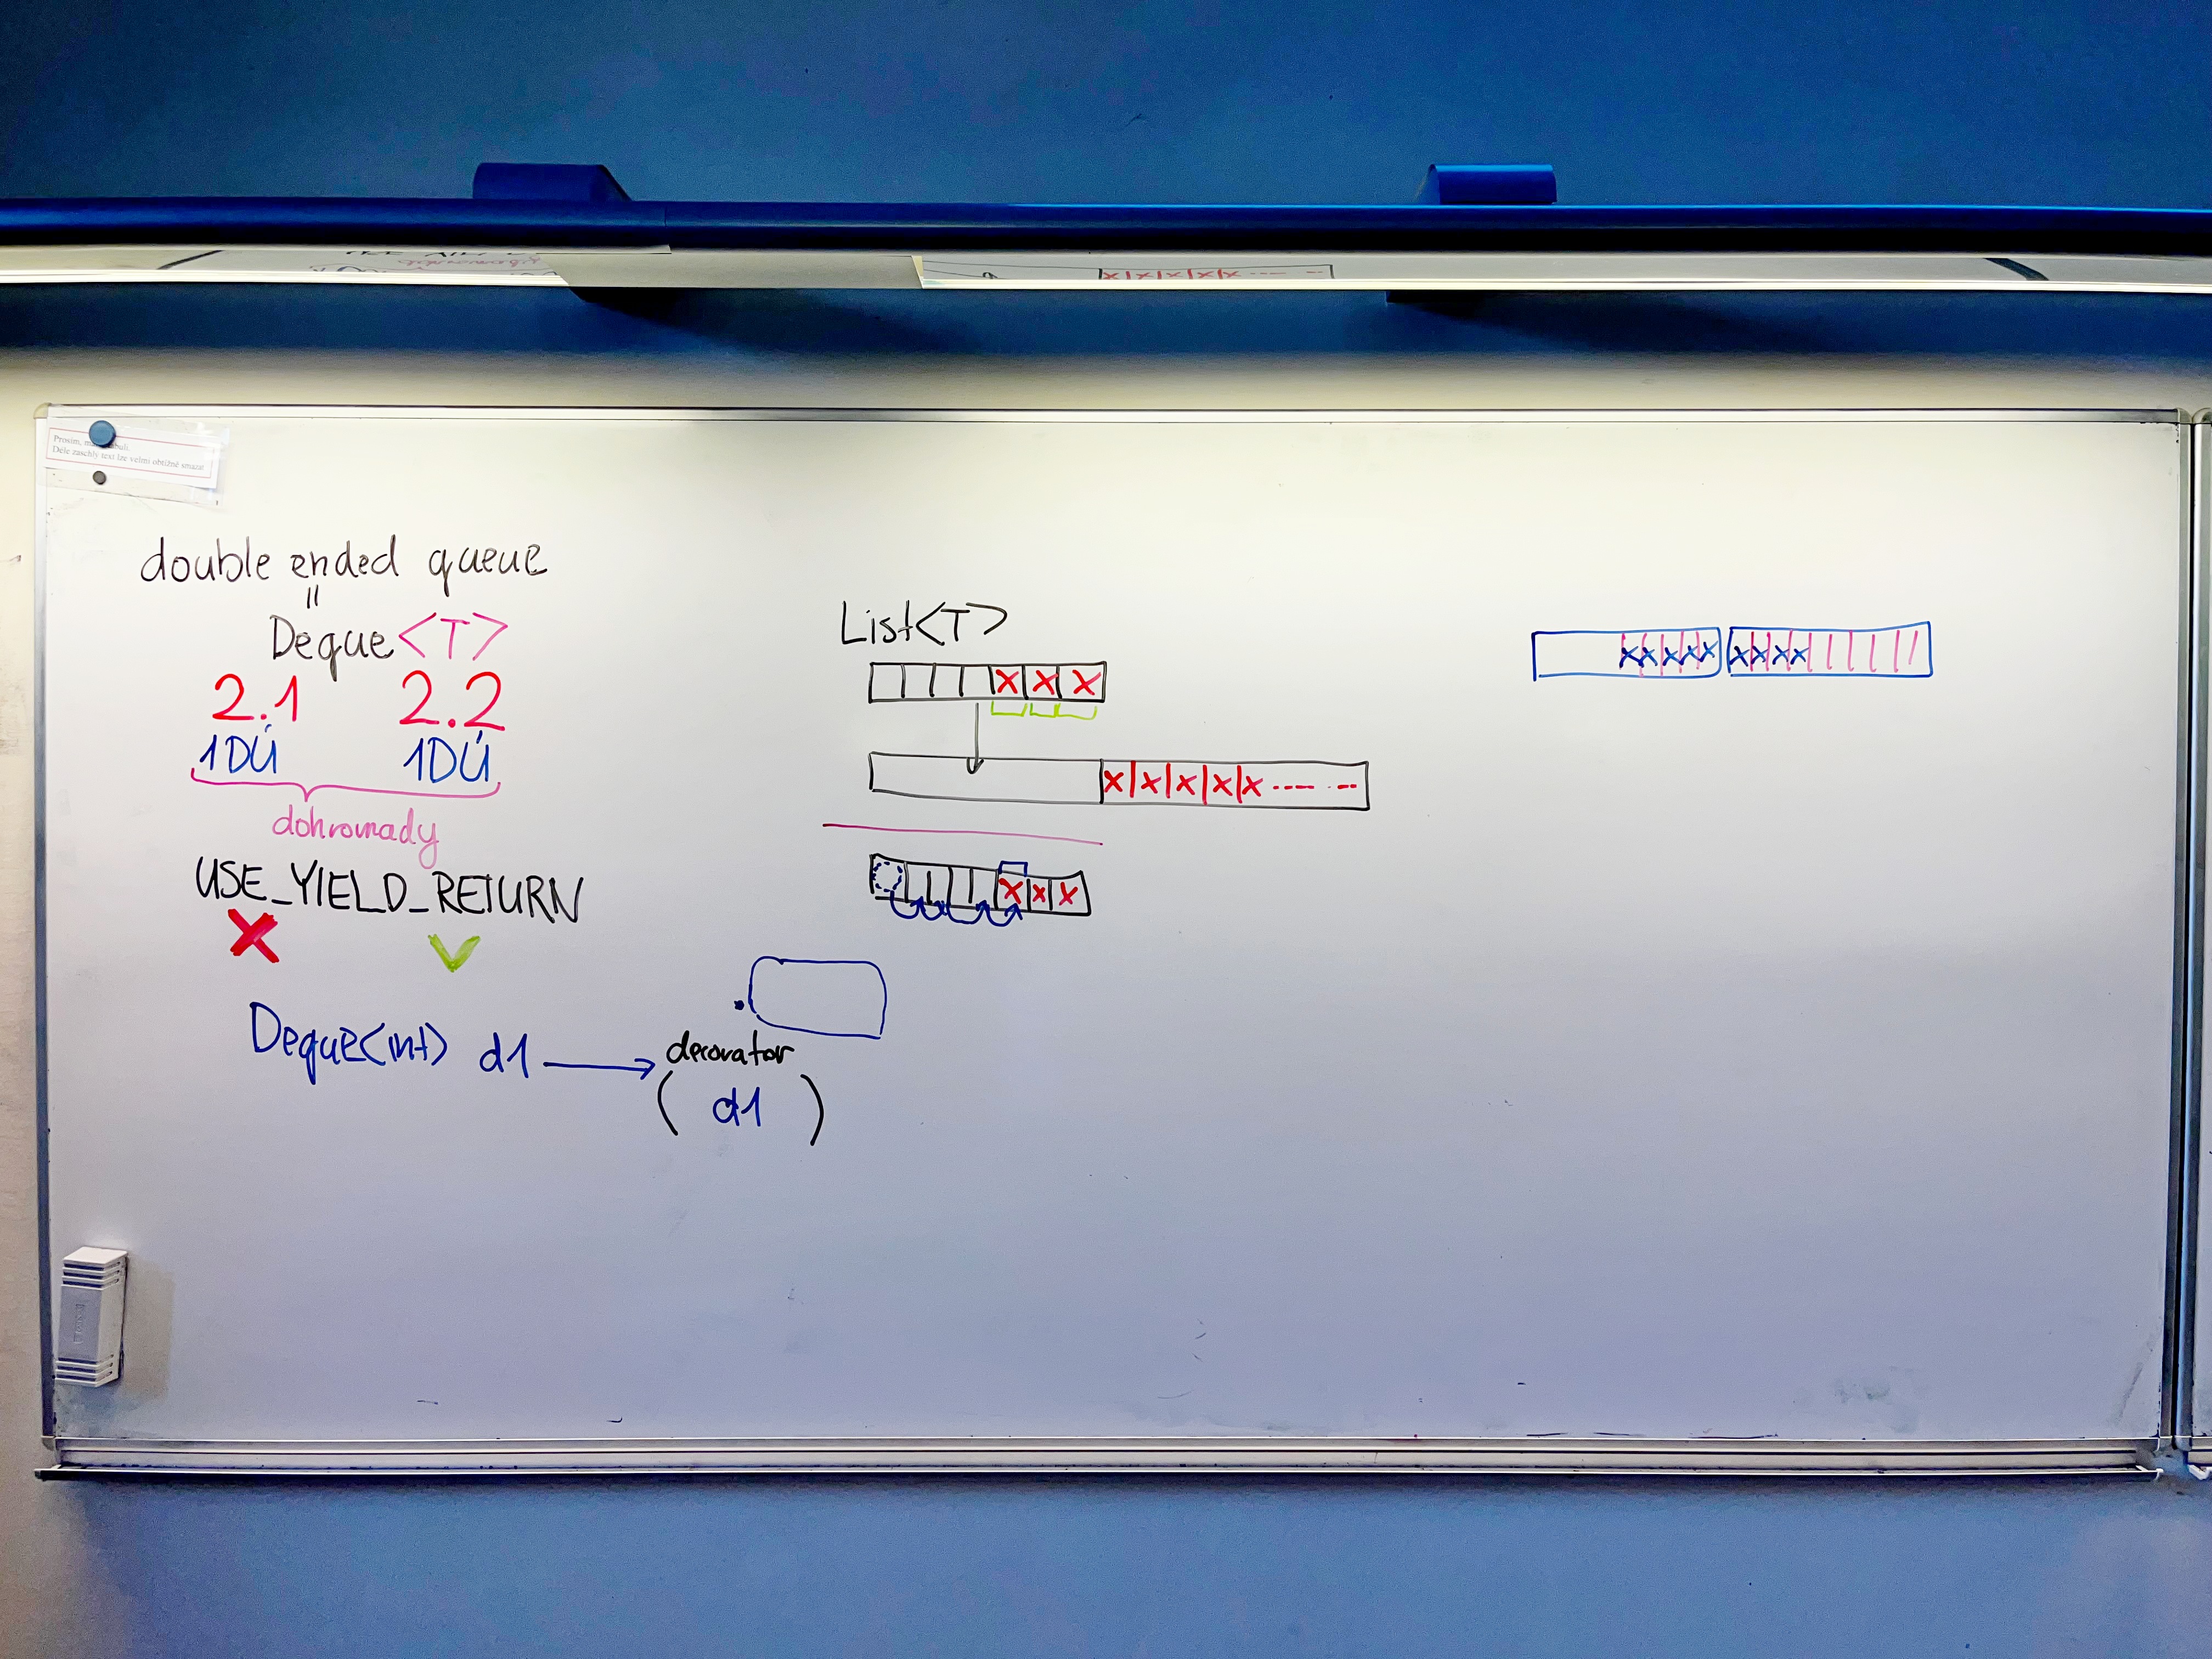 Prosím,
Déle zaschlý text lze velmi obtížně smazat
double ended queue
=
Deque<T>
2.1 2.2
1DÚ 1DÚ
dohromady
USE_YIELD_RETURN
Deque<int> d1
decorator
( d1 )
List<T>
x x x
x|x|x|x|x
x x x
xxxxx xxxx